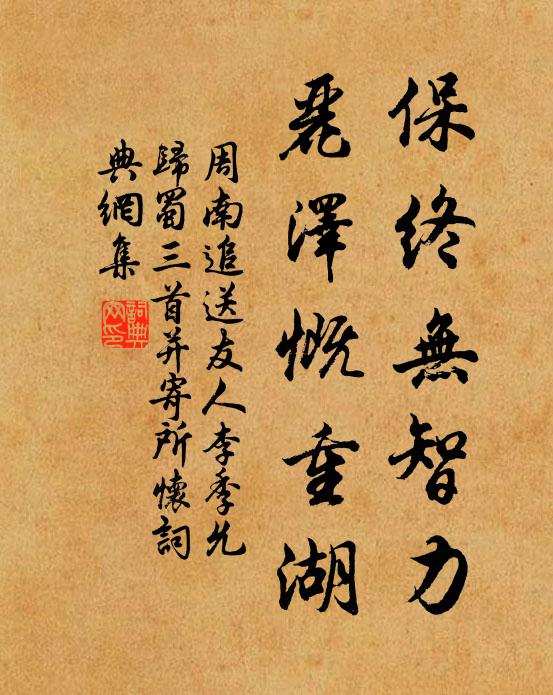 保終無智力
麗澤慨重湖
周南追送友人李季允
歸蜀三首并寄所懷詞
典網集
詞典
网印